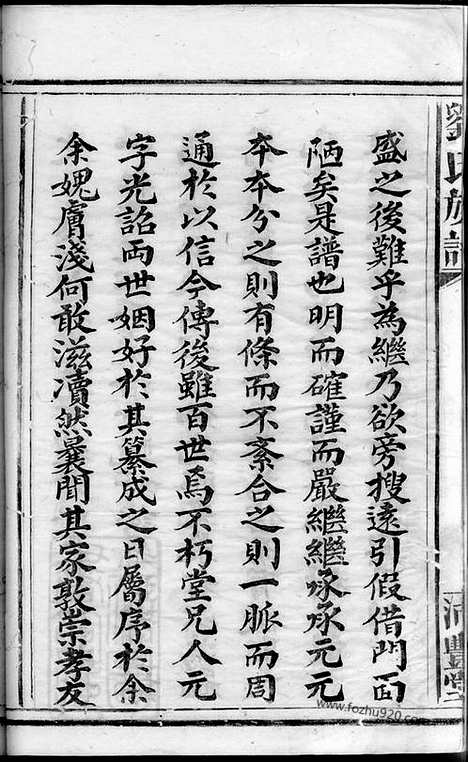 劉氏族譜
沛豐堂
盛之後難乎為繼乃欲旁搜遠引假借門面
陋矣是譜也明而確謹而嚴繼繼承承元元
本本分之則有條而不紊合之則一脈而周
通於以信今傳後雖百世焉不朽堂兄人元
字光詔両世姻好於其纂成之日屬序於余
余媿膚淺何敢滋瀆然曩聞其家敦崇孝友
www.fozhu920.com